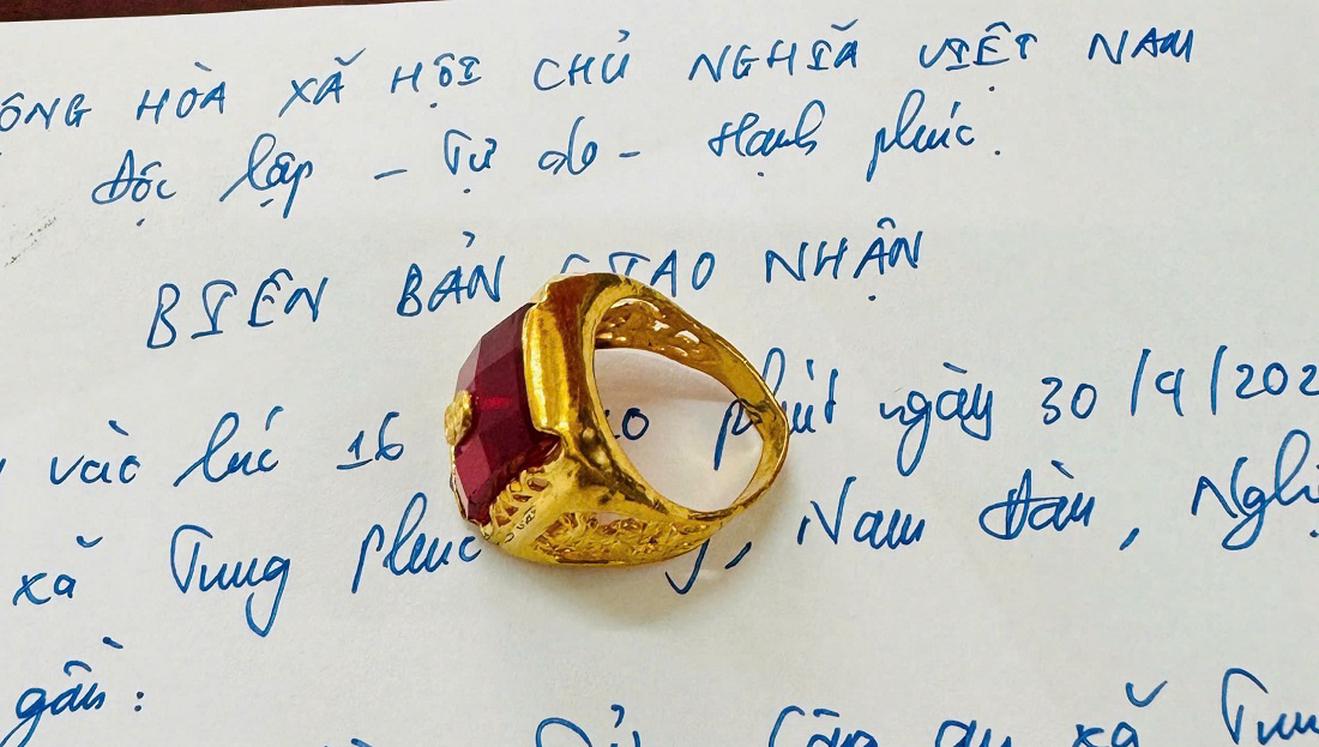 ÔNG HÒA XÃ HỘI CHỦ NGHĨA VIỆT NAM
Độc lập - Tự do - Hạnh phúc.
BIÊN BẢN GIAO NHẬN
vào lúc 16 phút ngày 30/9/202
xã Trung phúc Nam Đàn, Nghệ
gồm:
Công an xã Trun